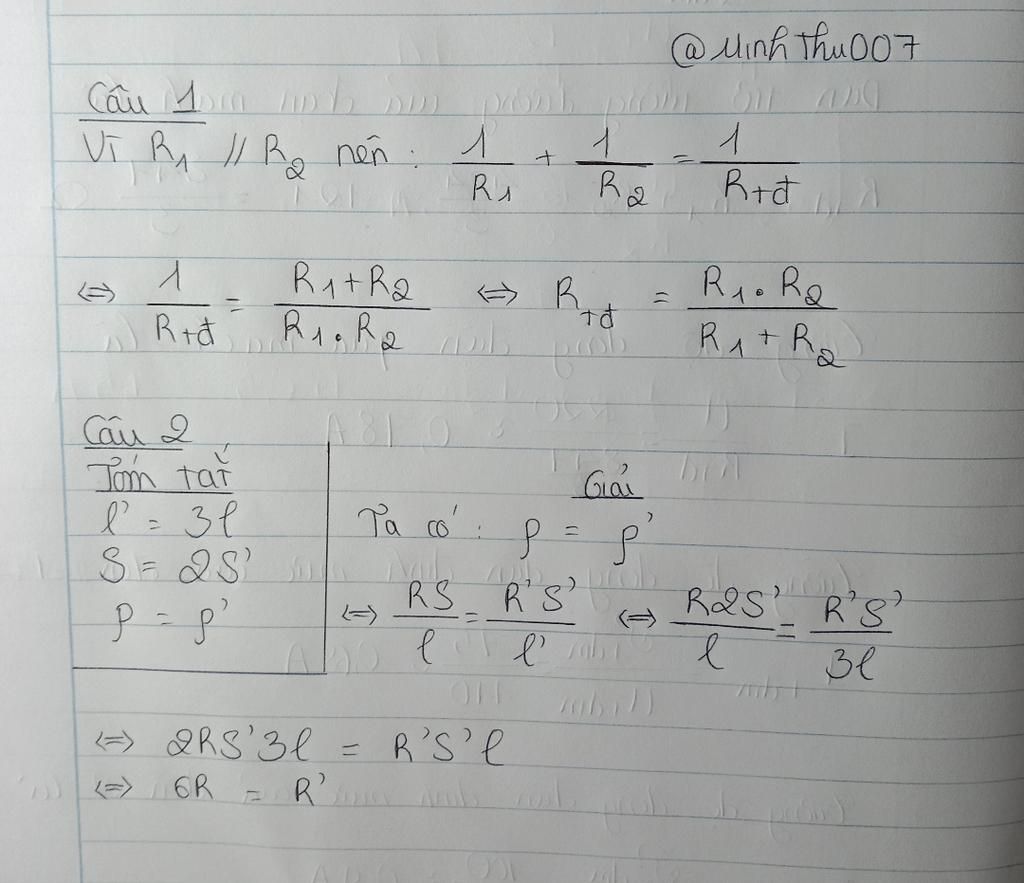 @MinhThu007
Câu 1
Vì R₁ // R₂ nên : 1/R₁ + 1/R₂ = 1/Rtđ
⇔ 1/Rtđ = (R₁+R₂)/(R₁.R₂) ⇔ Rtđ = (R₁.R₂)/(R₁+R₂)
Câu 2
Tóm tắt
l' = 3l
S = 2S'
ρ = ρ'
Giải
Ta có : ρ = ρ'
⇔ RS/l = R'S'/l' ⇔ R2S'/l = R'S'/3l
⇔ 2RS'3l = R'S'l
⇔ 6R = R'